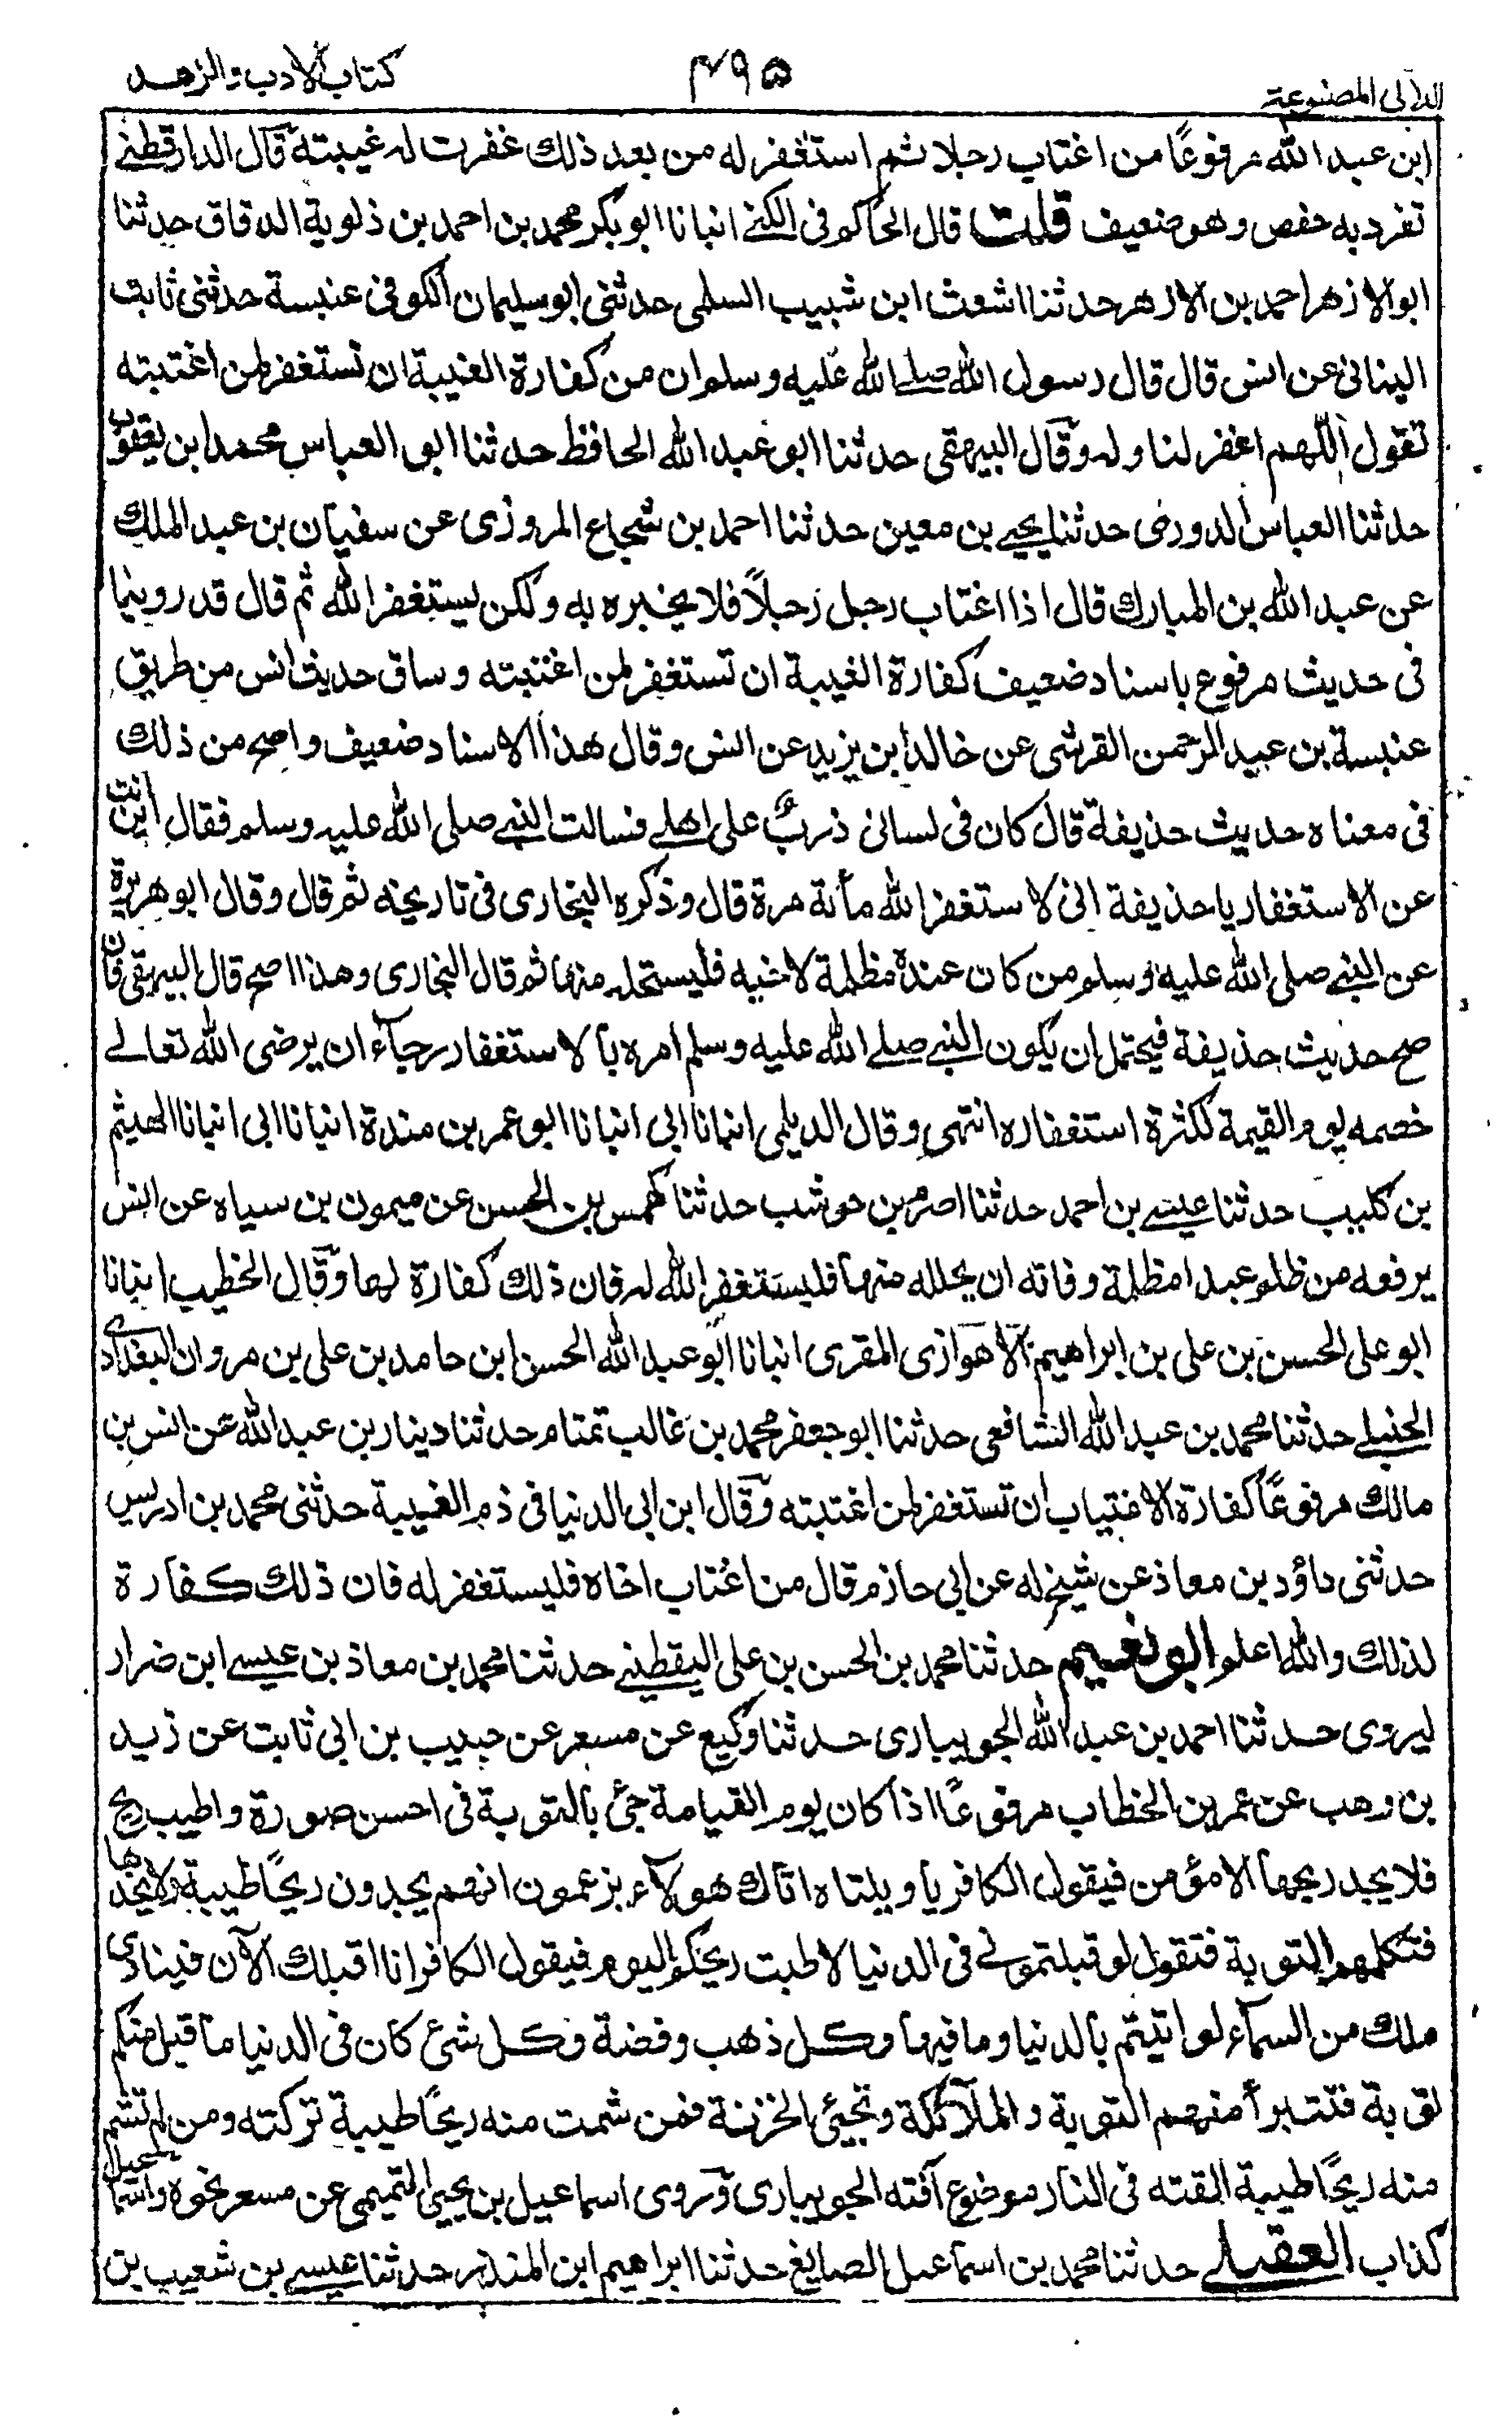 اللآلی المصنوعة ۴۹۵ کتاب الادب والزهد
ابن عبد الله مرفوعًا من اغتاب رجلا ثم استغفر له من بعد ذلك غفرت له غیبته قال الدارقطنے
تفرد به حفص وهو ضعیف قلت قال الحاکم فی الکنے انبانا ابو بکر محمد بن احمد بن ذلویة الدقاق حدثنا
ابو الازهر احمد بن الازهر حدثنا اشعث ابن شبیب السلمی حدثنی ابو سلیمان الکوفی عنبسة حدثنی ثابت
البنانی عن انس قال قال رسول الله صلے الله علیه وسلم ان من کفارة الغیبة ان تستغفر لمن اغتبته
تقول اللهم اغفر لنا وله وقال البیهقی حدثنا ابو عبد الله الحافظ حدثنا ابو العباس محمد ابن یعقوب
حدثنا العباس الدوری حدثنا یحیے بن معین حدثنا احمد بن شجاع المروزی عن سفیان بن عبد الملك
عن عبد الله بن المبارك قال اذا اغتاب رجل رجلاً فلا یخبره به ولکن یستغفر الله ثم قال قد روینا
فی حدیث مرفوع باسناد ضعیف کفارة الغیبة ان تستغفر لمن اغتبته وساق حدیث انس من طریق
عنبسة بن عبد الرحمن القرشی عن خالد ابن یزید عن انس وقال هذا الاسناد ضعیف واصح من ذلك
فی معناه حدیث حذیفة قال کان فی لسانی ذرب علی اهلے فسالت النبے صلی الله علیه وسلم فقال این انت
عن الاستغفار یا حذیفة انی لاستغفر الله مأئة مرة قال وذکره البخاری فی تاریخه ثم قال وقال ابو هریرة
عن النبے صلی الله علیه وسلم من کان عنده مظلمة لاخیه فلیستحله منها ثم قال البخاری وهذا اصح قال البیهقی فان
صح حدیث حذیفة فیحتمل ان یکون النبے صلے الله علیه وسلم امره بالاستغفار رجآء ان یرضی الله تعالے
خصمه یوم القیمة لکثرة استغفاره انتهی وقال الدیلمی انبانا ابی انبانا ابو عمر بن مندة انبانا ابی انبانا الهیثم
بن کلیب حدثنا عیسے بن احمد حدثنا اصرم بن حوشب حدثنا کهمس بن الحسن عن میمون بن سیاه عن انس
یرفعه من ظلم عبدا مظلمة وفاته ان یحلله منها فلیستغفر الله له فان ذلك کفارة لها وقال الخطیب انبانا
ابو علی الحسن بن علی بن ابراهیم الاهوازی المقری انبانا ابو عبد الله الحسن ابن حامد بن علی بن مروان البغدادی
الحنبلے حدثنا محمد بن عبد الله الشافعی حدثنا ابو جعفر محمد بن غالب تمتام حدثنا دینار بن عبد الله عن انس بن
مالك مرفوعًا کفارة الاغتیاب ان تستغفر لمن اغتبته وقال ابن ابی الدنیا فی ذم الغیبة حدثنی محمد بن ادریس
حدثنی داؤد بن معاذ عن شیخ له عن ابی حازم قال من اغتاب اخاه فلیستغفر له فان ذلك کفارة
لذلك والله اعلم ابو نعیم حدثنا محمد بن الحسن بن علی الیقطینے حدثنا محمد بن معاذ بن عیسے ابن ضرار
لیروی حدثنا احمد بن عبد الله الجویباری حدثنا وکیع عن مسعر عن حبیب بن ابی ثابت عن زید
بن وهب عن عمر بن الخطاب مرفوعًا اذا کان یوم القیامة جئ بالتوبة فی احسن صورة واطیب ریح
فلا یجد ریحها الا مؤمن فیقول الکافر یا ویلتاه اتاك هولآء یزعمون انهم یجدون ریحًا طیبة ولا نجدها
فتکلمهم التوبة فتقول لو قبلتمونے فی الدنیا لاطبت ریحکم الیوم فیقول الکافر انا اقبلك الآن فینادی
ملك من السمآء لو اتیتم بالدنیا وما فیها وکل ذهب وفضة وکل شئ کان فی الدنیا ما قبل منکم
توبة فتتبرأ منهم التوبة والملآئکة وتجیئ الخزنة فمن شمت منه ریحًا طیبة ترکته ومن لم تشم
منه ریحًا طیبة القته فی النار موضوع آفته الجویباری وروی اسماعیل بن یحیی التمیمی عن مسعر نحوه واسماعیل
کذاب العقیلے حدثنا محمد بن اسماعیل الصایغ حدثنا ابراهیم ابن المنذر حدثنا عیسے بن شعیب بن